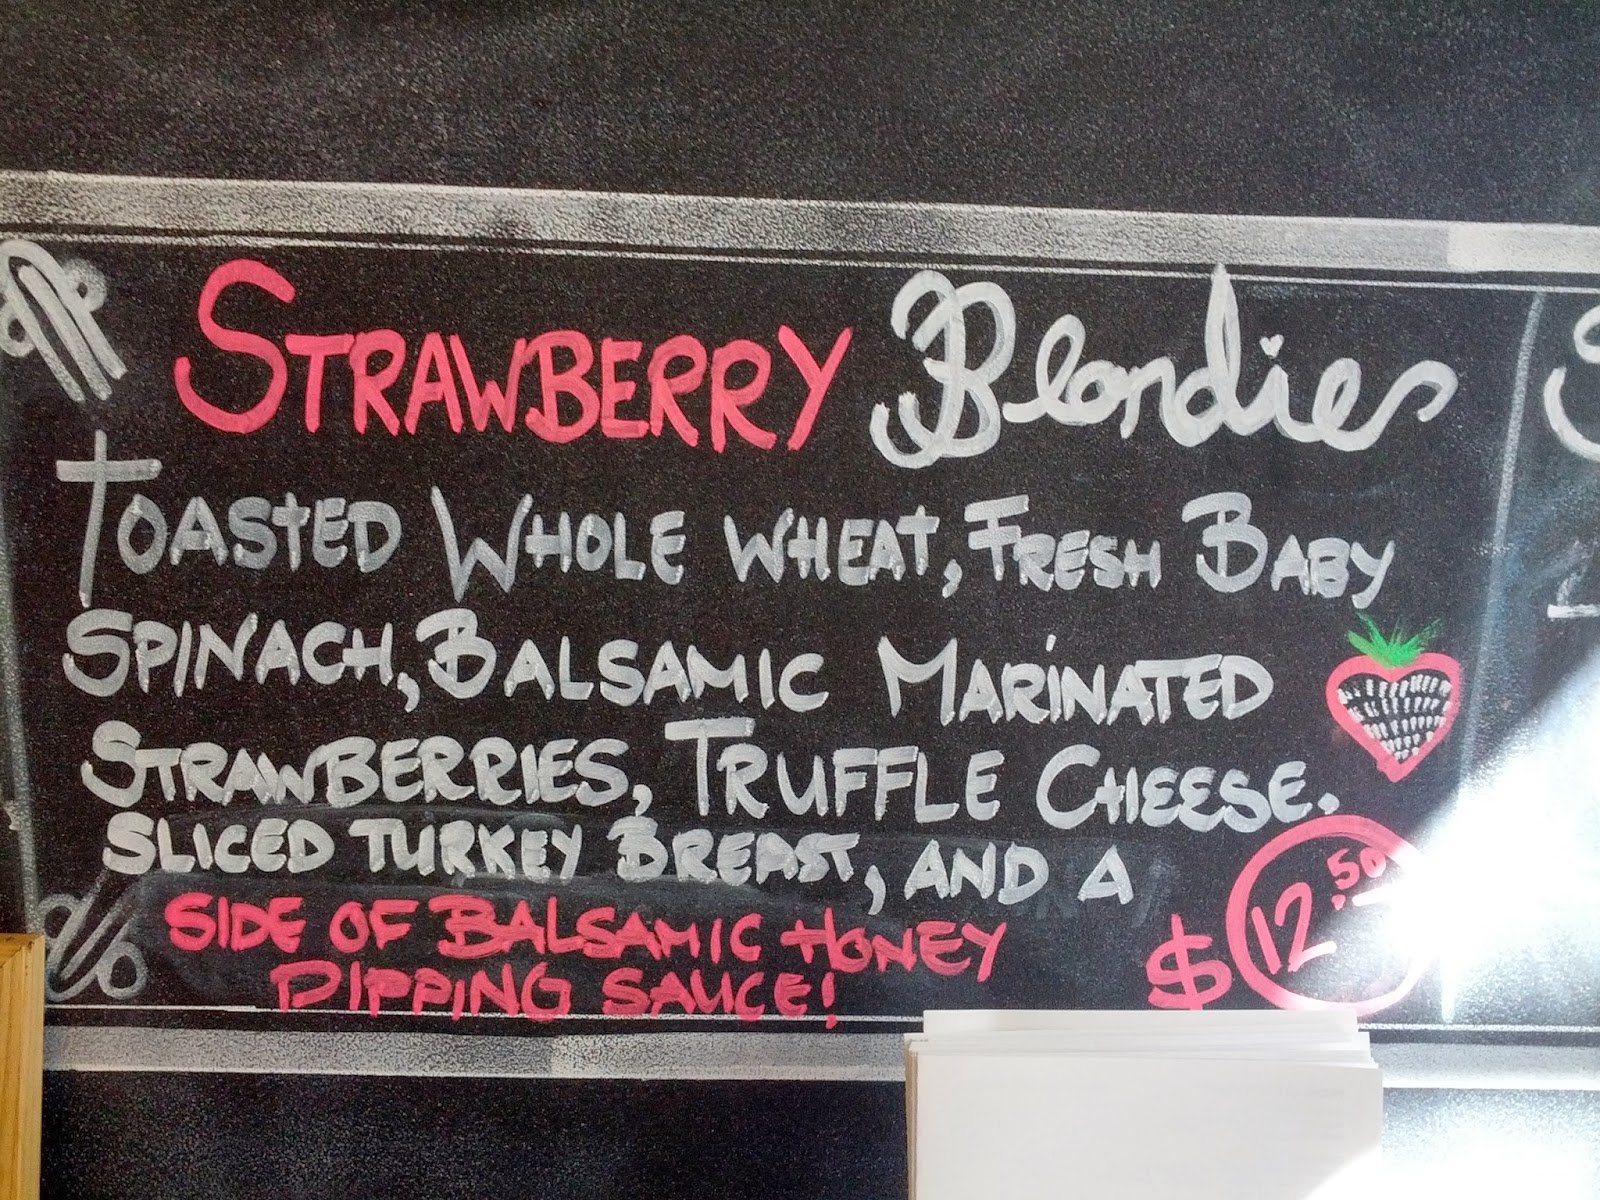 Strawberry Blondies
Toasted Whole Wheat, Fresh Baby
Spinach, Balsamic Marinated
Strawberries, Truffle Cheese.
Sliced Turkey Breast, and a
Side of Balsamic Honey
Dipping Sauce!
$12.50